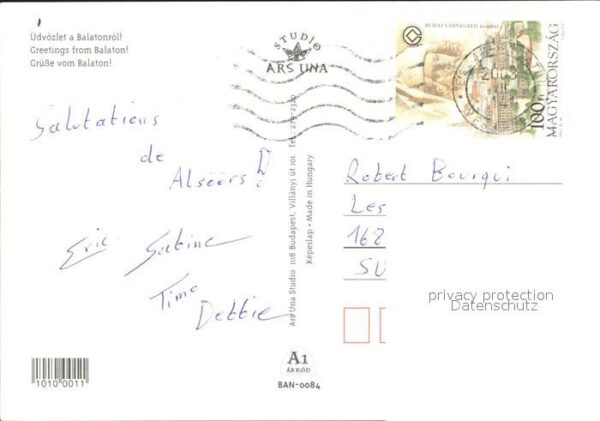 Üdvözlet a Balatonról!
Greetings from Balaton!
Grüße vom Balaton!
STUDIO
ARS UNA
BUDAI VÁRNEGYED
100Ft
MAGYARORSZÁG
2003
Salutations
de
Alsóörs!
Eric Sabine
Timo
Debbie
Ars Una Studio 1118 Budapest, Villányi út 101. Tel.:
Képeslap • Made in Hungary
Robert Bourqui
Les
162
SU
privacy protection
Datenschutz
1010 0011
A1
ÁRKÓD
BAN-0084